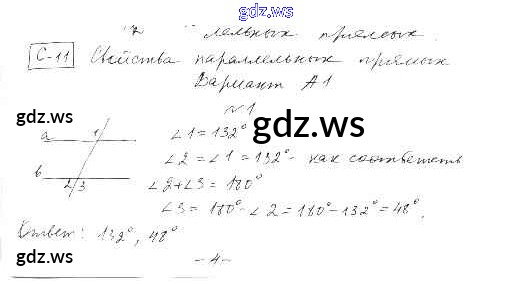 gdz.ws
льных прямых.
С-11 Свойства параллельных прямых
Вариант А1
№1
gdz.ws
gdz.ws
a 1 ∠1 = 132°
∠2 = ∠1 = 132° - как соответств
b 2 3 ∠2+∠3 = 180°
∠3 = 180° - ∠2 = 180° - 132° = 48°.
Ответ: 132°, 48°
gdz.ws
gdz.ws
- 4 -